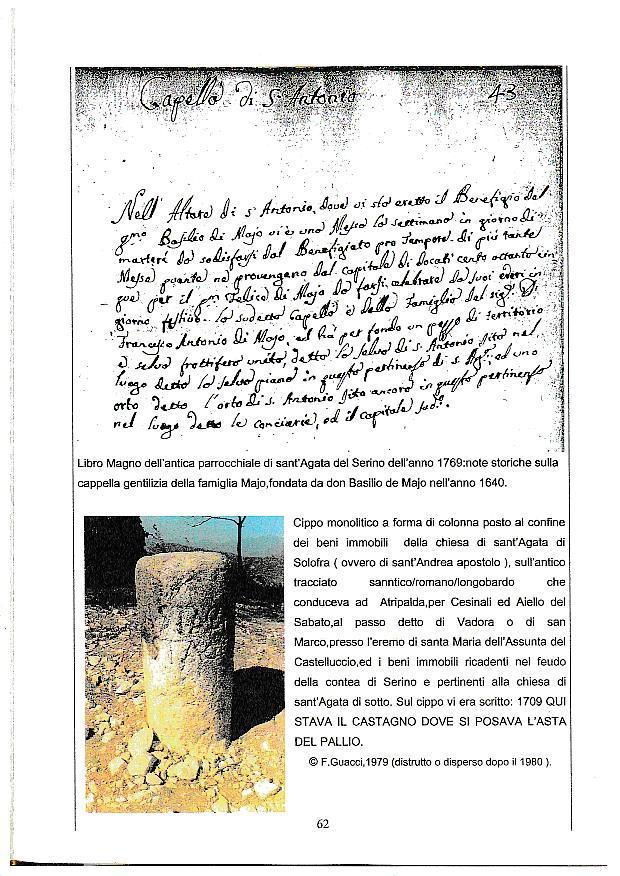 Capella di S. Antonio 43
Nell' Altare di s. Antonio, dove vi sta eretto il Benefizio del
qm̄o Basilio di Majo vi è una Messa la settimana in giorno di
marterì da sodisfarsi dal Benefiziato pro tempore. di più tante
Messe quante ne provengono dal capitale di docati cento ottanta cin
que per il qm̄ Felice di Majo da farsi celebrare da suoi eredi in
giorno festivo. La sudetta Capella è della Famiglia del sig.r D.
Francesco Antonio di Majo, ed hà per fondo un pezzo di territorio
e selva fruttifera unito, detto la selva di s. Antonio sito nel
luogo detto la selva piana in questa pertinenza di s. Ag.ta ed uno
orto detto l'orto di s. Antonio sito ancora in questa pertinenza
nel luogo detto le conciarie, ed il capitale sud.o.
Libro Magno dell'antica parrocchiale di sant'Agata del Serino dell'anno 1769:note storiche sulla
cappella gentilizia della famiglia Majo,fondata da don Basilio de Majo nell'anno 1640.
Cippo monolitico a forma di colonna posto al confine
dei beni immobili della chiesa di sant'Agata di
Solofra ( ovvero di sant'Andrea apostolo ), sull'antico
tracciato sanntico/romano/longobardo che
conduceva ad Atripalda,per Cesinali ed Aiello del
Sabato,al passo detto di Vadora o di san
Marco,presso l'eremo di santa Maria dell'Assunta del
Castelluccio,ed i beni immobili ricadenti nel feudo
della contea di Serino e pertinenti alla chiesa di
sant'Agata di sotto. Sul cippo vi era scritto: 1709 QUI
STAVA IL CASTAGNO DOVE SI POSAVA L'ASTA
DEL PALLIO.
© F.Guacci,1979 (distrutto o disperso dopo il 1980 ).
62